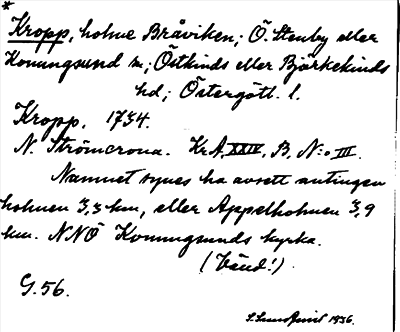 *
Kropp, holme Bråviken; Ö. Stenby eller
Konungsund sn; Östkinds eller Björkekinds
hd; Östergötl. l.
Kropp. 1734.
N. Strömcrona. KrA, XXIV, B, N:o III.
Namnet synes ha avsett antingen
holmen 3,3 km, eller Appelholmen 3,9
km. NNÖ Konungsunds kyrka.
(Vänd!)
G. 56.
1936.